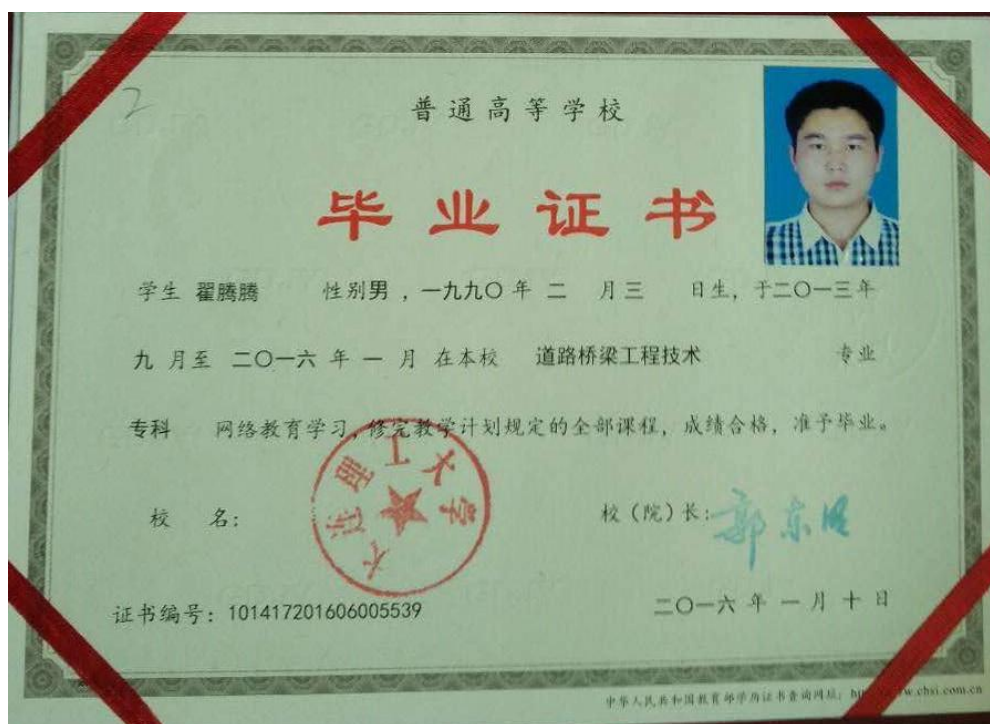 2
普通高等学校
毕业证书
学生 翟腾腾 性别男，一九九〇年 二 月三 日生，于二〇一三年
九 月至 二〇一六 年 一 月 在本校 道路桥梁工程技术 专业
专科 网络教育学习，修完教学计划规定的全部课程，成绩合格，准予毕业。
大连理工大学
校 名： 校（院）长：郭东明
证书编号：101417201606005539 二〇一六 年 一 月 十 日
中华人民共和国教育部学历证书查询网址：www.chsi.com.cn